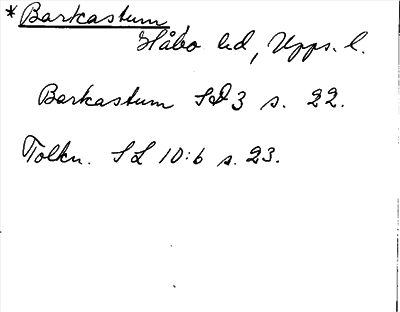 *Barkastum,
Håbo hd, Upps. l.
Barkastum SD 3 s. 22.
Tolkn. SL 10:6 s. 23.